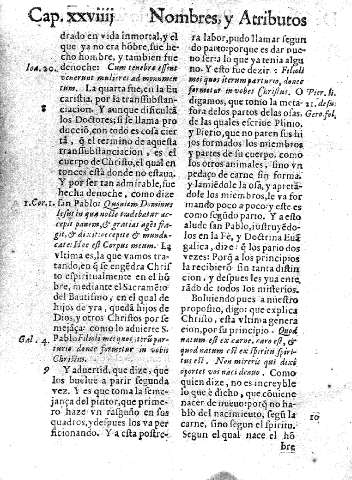 Cap. xxviiij Nombres, y Atributos
drado en vida inmortal, y el
que ya no era hõbre, fue he-
cho hombre, y tambien fue
Ioa. 20. denoche: Cum tenebræ essent
venerunt mulieres ad monumen
tum. La quarta fue, en la Eu
caristia, por la transsubstan-
8 ciacion. Y aunque dificultã
los Doctores; si se llama pro
duccio, con todo es cosa cier
ta, q̃ el termino de aquesta
transubstanciacion, es el
cuerpo de Christo, el qual en
tonces està donde no estaua.
Y por ser tan admirable, fue
hecha denoche, como dize
1. Cor. 1. san Pablo: Dominus
Iesus in qua nocte tradebatur ac-
cepit panem, & gratias agēs fre-
git, & dixit: accipite & mandu-
cate: Hoc est Corpus meum. La
vltima es, la que vamos tra-
tando, en q̃ se engēdra Christ
to espiritualmente en el hõ
bre, mediante el Sacramēto
del Bautismo, en el qual de
hijos de yra, quedã hijos de
Dios, y otros Christos por se
mejãça: como lo aduierte S.
Gal. 4. Pablo: Filioli mei, quos iterũ par-
turio donec formetur in vobis
Christus.
9 Y aduertid, que dize, que
los buelue a parir segunda
vez. Y es que toma la seme-
jança del pintor, que prime-
ro haze vn rasguño en sus
quadros, y despues los va per
ficionando. Y a esta postre-
ra labor, pudo llamar segun
do parto: porque es dar nue-
uo ser a lo que ya tenia algu
no. Y esto fue dezir: Filioli
mei quos iterum parturio, donec
formetur in vobis Christus. O Pier. li.
digamos, que tomò la meta- 11. de su.
fora de los partos de las osas. Gerogl. fol.
de las quales escriue Plinio,
y Pierio, que no paren sus hi
jos formados los miembros
y partes de su cuerpo, como
los otros animales, sino vn
pedaço de carne sin forma,
y lamiēdole la osa, y apretã-
dole los miembros, le va for
mando poco a poco: y este es
como segũdo parto. Y a esto
alude san Pablo, instruyēdo-
los en la Fè, y Doctrina Euã
galica, dize: q̃ los pario dos
vezes: Porq̃ a los principios
la recibierõ sin tanta distin
cion, y despues les yua ente-
rãdo de todos los misterios.
Boluiendo pues a nuestro
proposito, digo: que explica
Christo, esta vltima genera
cion, por su principio. Quod
natum est ex carne, caro est, &
quod natum est ex spiritu spiri-
tus est. Non mireris quia dixi
oportet vos nasci denuo. Como
quien dize, no es increyble
lo que te dicho, que cõuiene
nacer de nueuo: porq̃ no ha-
blo del nacimiento, segũ la
carne, sino segun el spiritu. 10
Segun el qual nace el hõ
bre